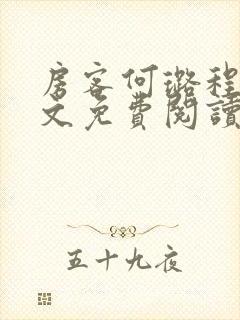 房客何璐程
文免費閱讀
五十九夜